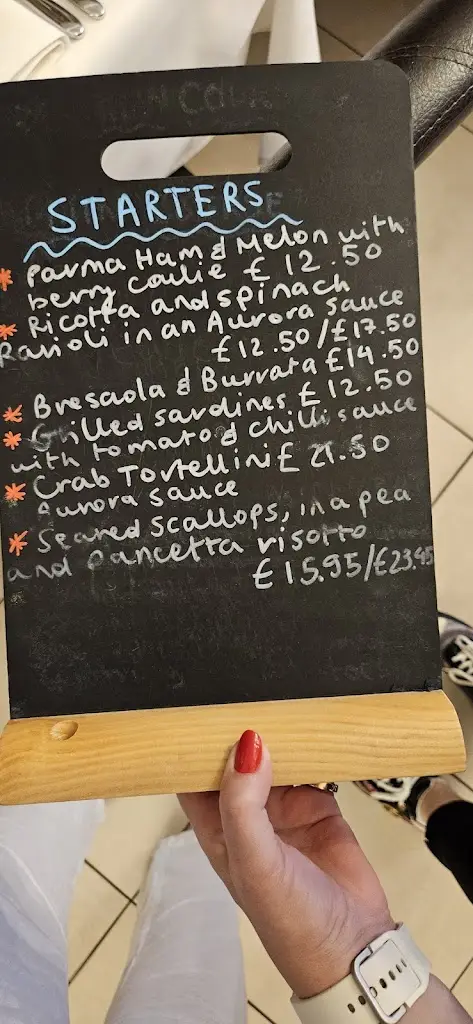 STARTERS
* Parma Ham & Melon with
berry coulie £ 12.50
* Ricotta and spinach
Ravioli in an Aurora sauce
£12.50/£17.50
* Bresaola & Burrata £14.50
* Grilled sardines £12.50
with tomato & chilli sauce
* Crab Tortellini £ 21.50
Aurora sauce
* Seared scallops, in a pea
and Pancetta risotto
£15.95/£23.95